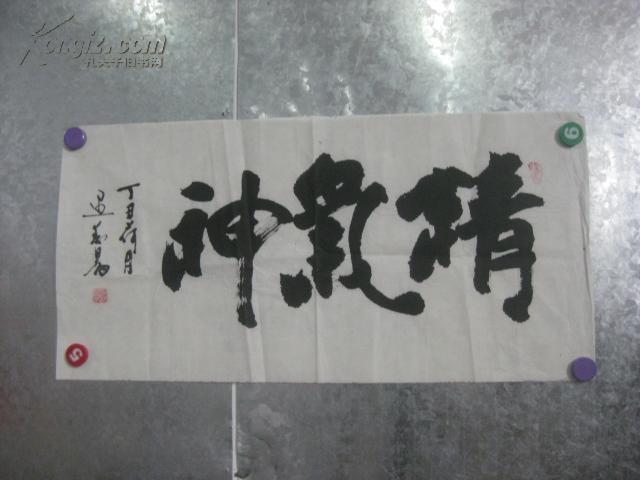 精氣神
丁丑荷月
Kongfz.com
孔夫子旧书网
6
5